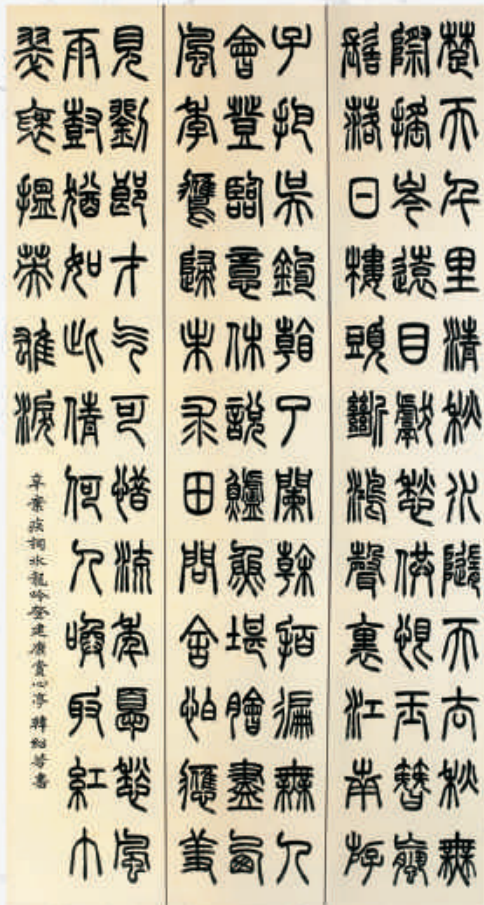 楚天千里清秋水隨天去秋無
際遙岑遠目獻愁供恨玉簪螺
髻落日樓頭斷鴻聲裏江南游
子把吳鉤看了闌榦拍徧無人
會登臨意休說鱸魚堪膾盡西
風季鷹歸未求田問舍怕應羞
見劉郎才气可惜流年憂愁風
雨樹猶如此倩何人喚取紅巾
翠褎搵英雄淚
辛棄疾詞水龍吟登建康賞心亭 韓紹書